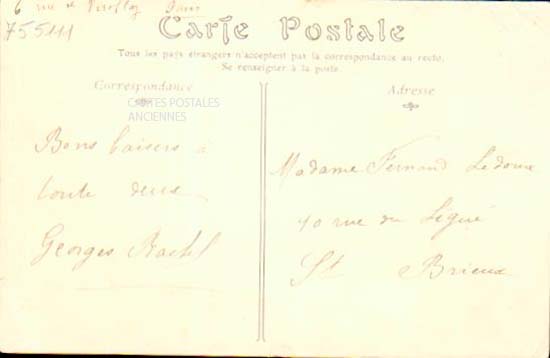 6 rue de Paris
75511
Carte Postale
Tous les pays étrangers n'acceptent pas la correspondance au recto.
Se renseigner à la poste.
Correspondance
CARTES POSTALES
ANCIENNES
Bons baisers à
toute deux
Georges
Adresse
Madame Fernand Ledoux
40 rue du Légué
St Brieux